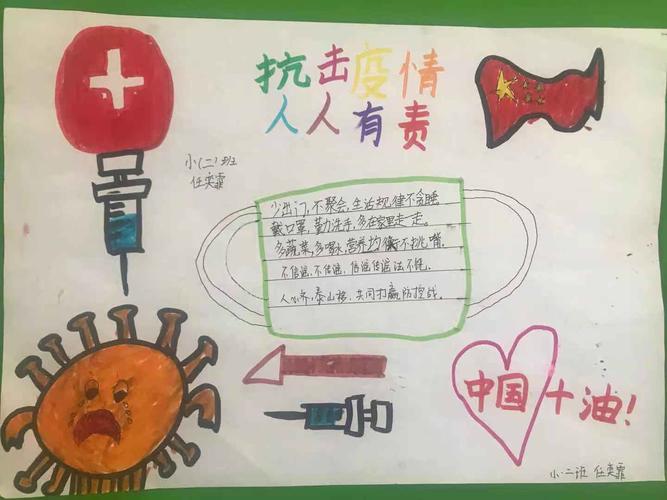 抗击疫情
人人有责
小(二)班
任奕霏
少出门,不聚会,生活规律不贪睡
戴口罩,勤洗手,多在家里走一走。
多蔬菜,多喝水,营养均衡不挑嘴。
不信谣,不传谣,信谣传谣法不饶。
人心齐,泰山移,共同打赢防控战。
中国十油!
小·二班 任奕霏